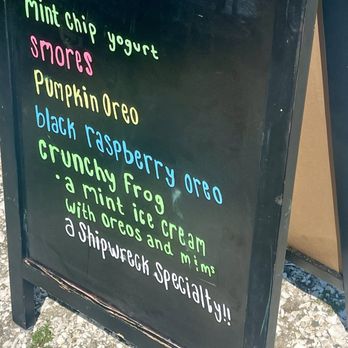 mint chip yogurt
smores
Pumpkin Oreo
black raspberry oreo
crunchy frog
·a mint ice cream
with oreos and m:ms
a Shipwreck Specialty!!